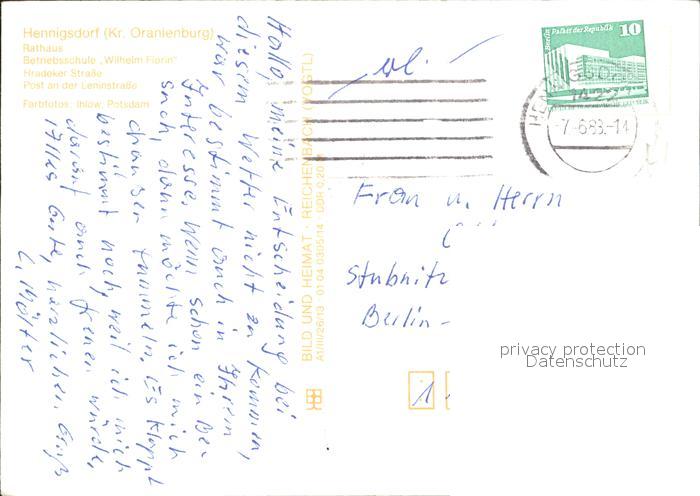 Hennigsdorf (Kr. Oranienburg)
Rathaus
Betriebsschule „Wilhelm Florin"
Hradeker Straße
Post an der Leninstraße
Farbfotos: Ihlow, Potsdam
Hallo, meine Entscheidung bei
diesem Wetter nicht zu kommen,
war bestimmt auch in Ihrem
Interesse. Wenn schon ein Be-
such, dann möchte ich mich
draußen tummeln. Es klappt
bestimmt noch, weil ich mich
darauf auch freuen würde.
Alles Gute, herzlichen Gruß
BILD UND HEIMAT · REICHENBACH (VOGTL)
A1/III/26/13 01 04 0305/14 · DDR 0,20
Berlin Palast der Republik 10
HENNIGSDORF
1422
-7.-6.83.-14
Frau u. Herrn
Stubnitz
Berlin -
1
privacy protection
Datenschutz